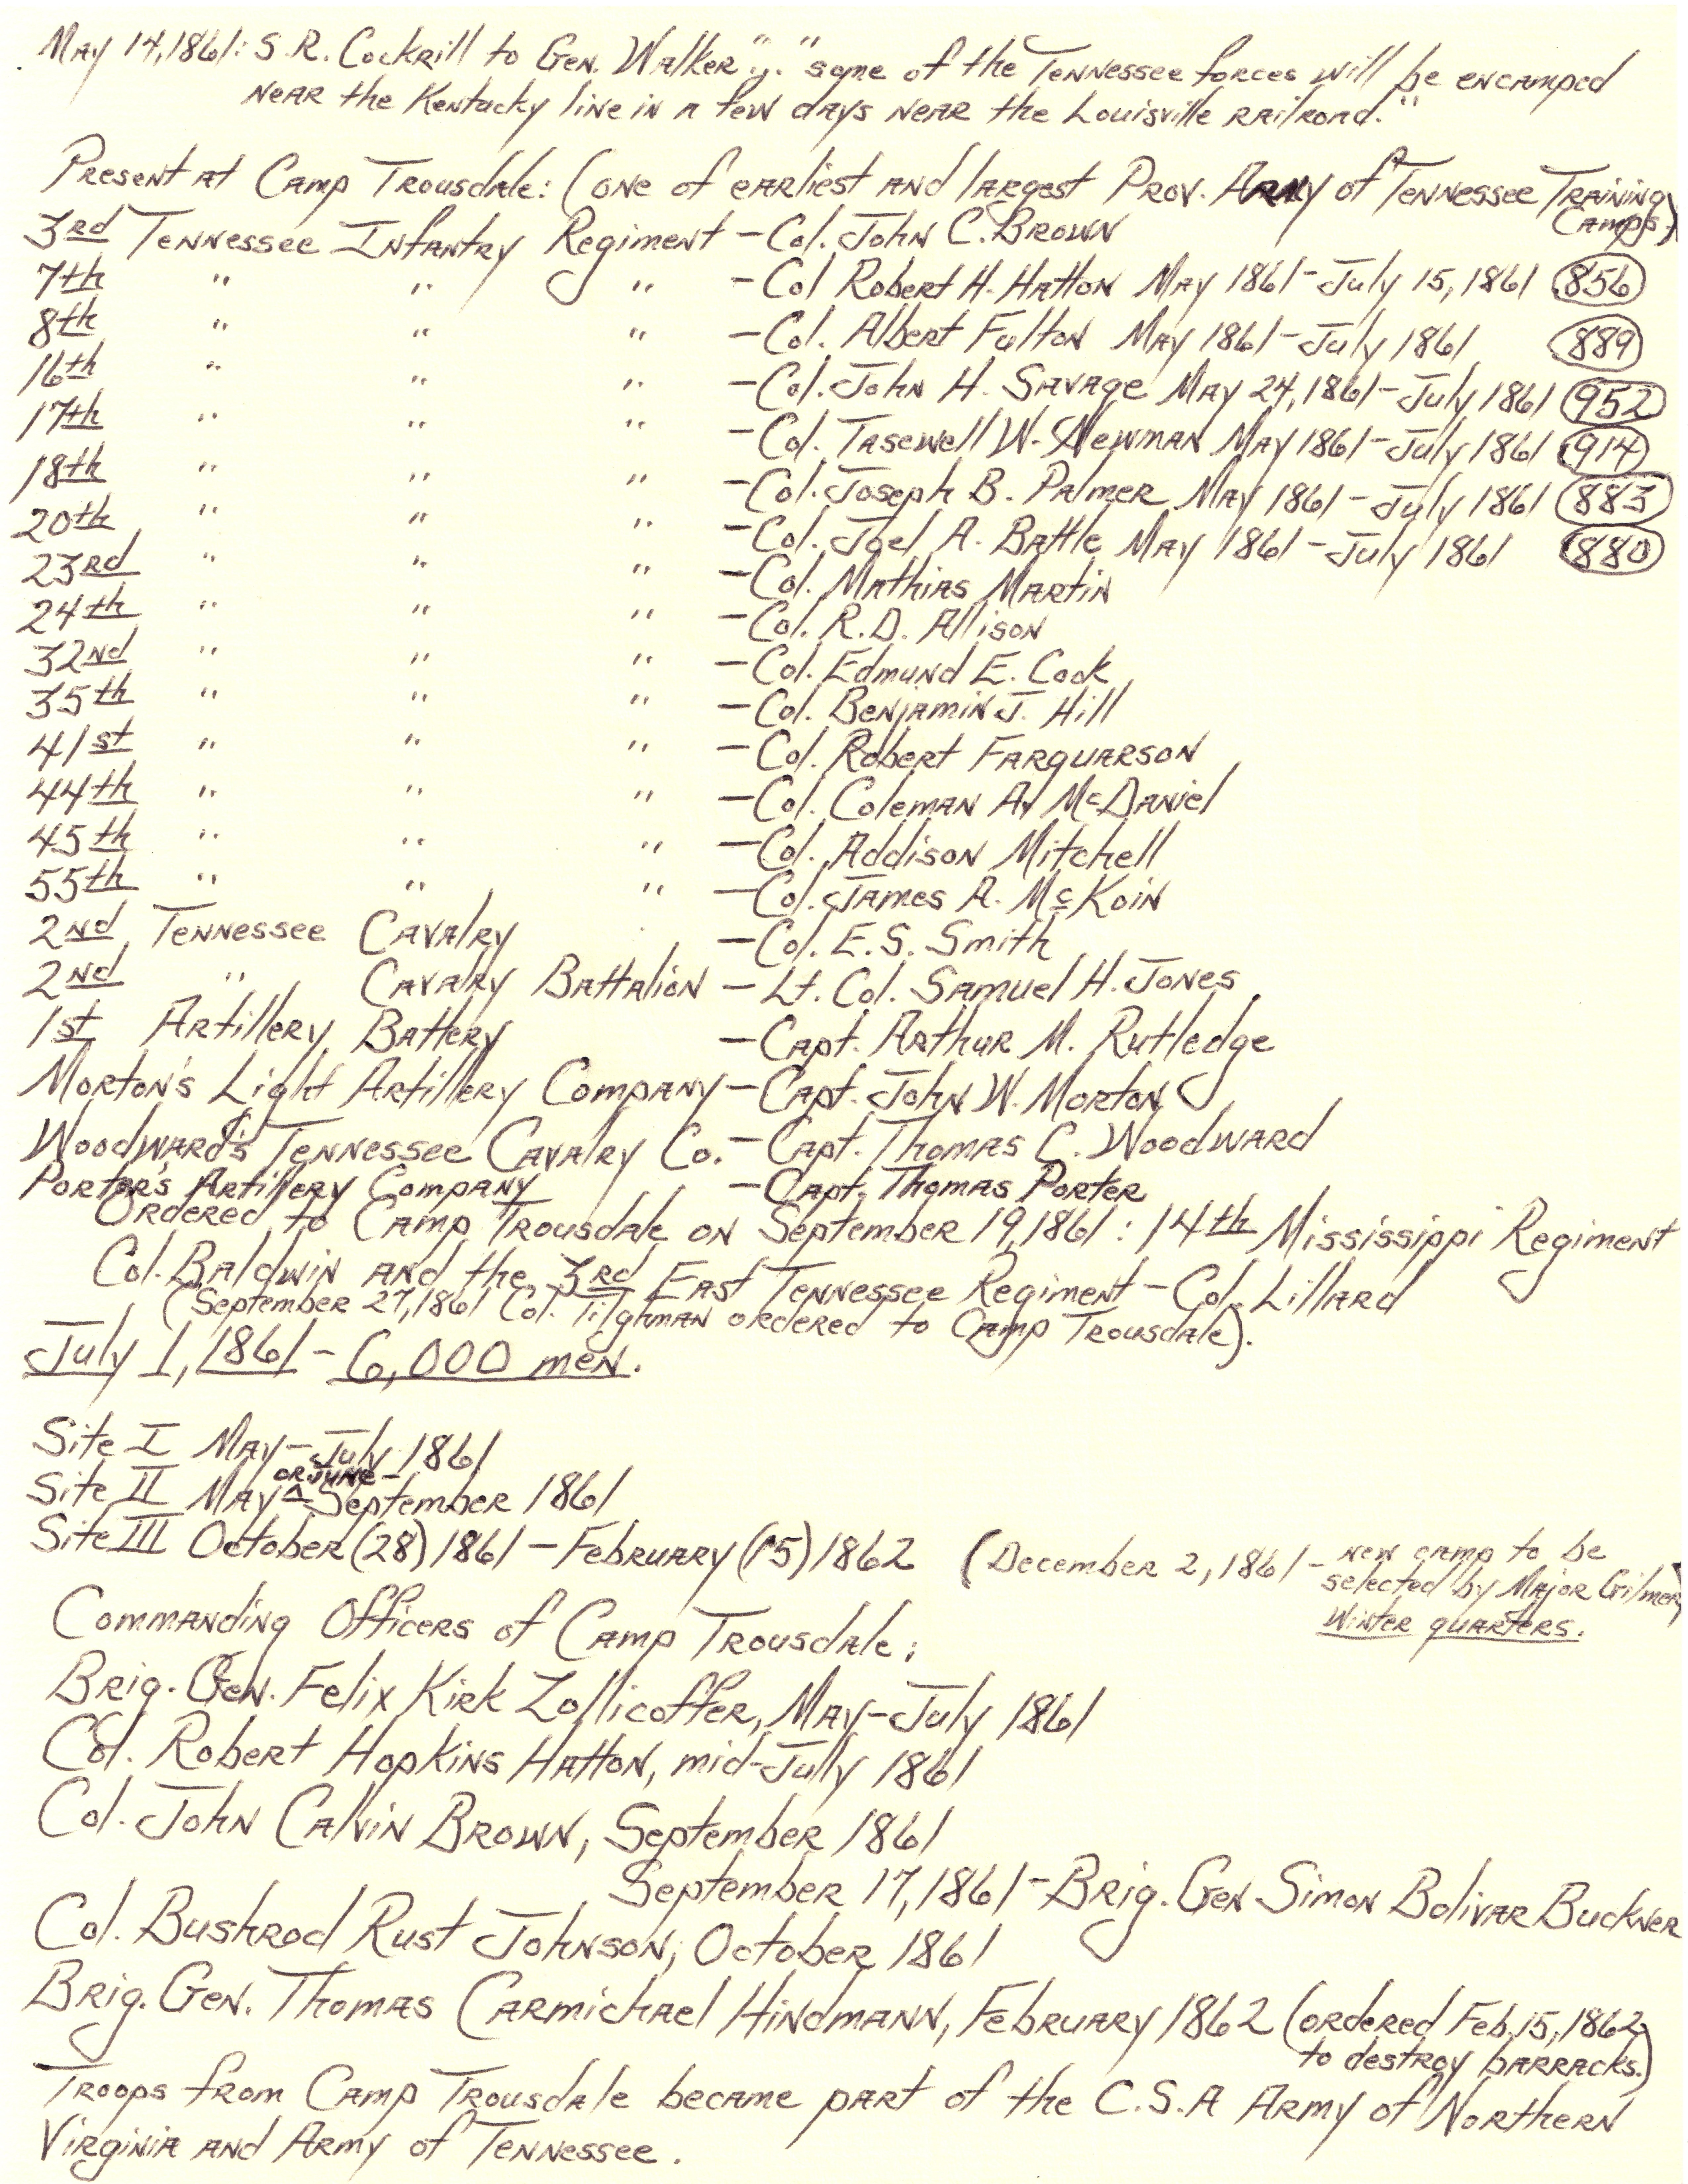 May 14, 1861: S.R. Cockrill to Gen. Walker "..." some of the Tennessee forces will be encamped
near the Kentucky line in a few days near the Louisville railroad."
Present at Camp Trousdale: (one of earliest and largest Prov. Army of Tennessee Training Camps.)
3rd Tennessee Infantry Regiment - Col. John C. Brown
7th " " " - Col Robert H. Hatton May 1861 - July 15, 1861 856
8th " " " - Col. Albert Fulton May 1861 - July 1861 889
16th " " " - Col. John H. Savage May 24, 1861 - July 1861 952
17th " " " - Col. Tasewell W. Newman May 1861 - July 1861 914
18th " " " - Col. Joseph B. Palmer May 1861 - July 1861 883
20th " " " - Col. Joel A. Battle May 1861 - July 1861 880
23rd " " " - Col. Mathias Martin
24th " " " - Col. R.D. Allison
32nd " " " - Col. Edmund E. Cook
35th " " " - Col. Benjamin J. Hill
41st " " " - Col. Robert Farquarson
44th " " " - Col. Coleman A. McDaniel
45th " " " - Col. Addison Mitchell
55th " " " - Col. James A. McKoin
2nd Tennessee Cavalry - Col. E.S. Smith
2nd " Cavalry Battalion - Lt. Col. Samuel H. Jones
1st Artillery Battery - Capt. Arthur M. Rutledge
Morton's Light Artillery Company - Capt. John W. Morton
Woodward's Tennessee Cavalry Co. - Capt. Thomas C. Woodward
Porter's Artillery Company - Capt. Thomas Porter
Ordered to Camp Trousdale on September 19, 1861: 14th Mississippi Regiment
Col. Baldwin and the 3rd East Tennessee Regiment - Col. Lillard
(September 27, 1861 Col. Tilghman ordered to Camp Trousdale).
July 1, 1861 - 6,000 men.
Site I May - July 1861
Site II May or June - September 1861
Site III October (28) 1861 - February (15) 1862 (December 2, 1861 - new camp to be
selected by Major Gilmer)
Winter quarters.
Commanding Officers of Camp Trousdale:
Brig. Gen. Felix Kirk Zollicoffer, May - July 1861
Col. Robert Hopkins Hatton, mid-July 1861
Col. John Calvin Brown, September 1861
September 17, 1861 - Brig. Gen Simon Bolivar Buckner
Col. Bushrod Rust Johnson, October 1861
Brig. Gen. Thomas Carmichael Hindmann, February 1862 (ordered Feb. 15, 1862
to destroy barracks.)
Troops from Camp Trousdale became part of the C.S.A Army of Northern
Virginia and Army of Tennessee.